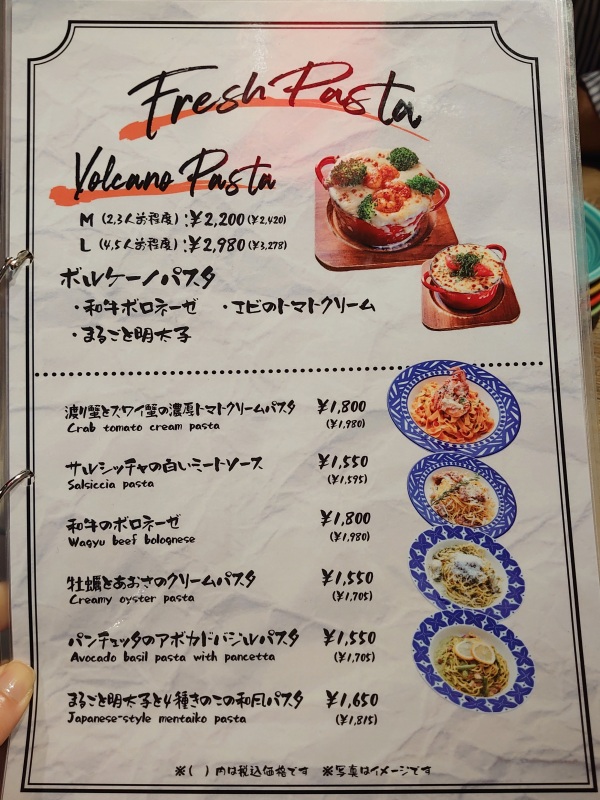 Fresh Pasta
Volcano Pasta
M (2,3人前程度) : ¥2,200 (¥2,420)
L (4,5人前程度) : ¥2,980 (¥3,278)
ボルケーノパスタ
・和牛ボロネーゼ ・エビのトマトクリーム
・まるごと明太子
渡り蟹とズワイ蟹の濃厚トマトクリームパスタ ¥1,800
Crab tomato cream pasta (¥1,980)
サルシッチャの白いミートソース ¥1,550
Salsiccia pasta (¥1,595)
和牛のボロネーゼ ¥1,800
Wagyu beef bolognese (¥1,980)
牡蠣とあおさのクリームパスタ ¥1,550
Creamy oyster pasta (¥1,705)
パンチェッタのアボカドバジルパスタ ¥1,550
Avocado basil pasta with pancetta (¥1,705)
まるごと明太子と4種きのこの和風パスタ ¥1,650
Japanese-style mentaiko pasta (¥1,815)
※( )内は税込価格です ※写真はイメージです